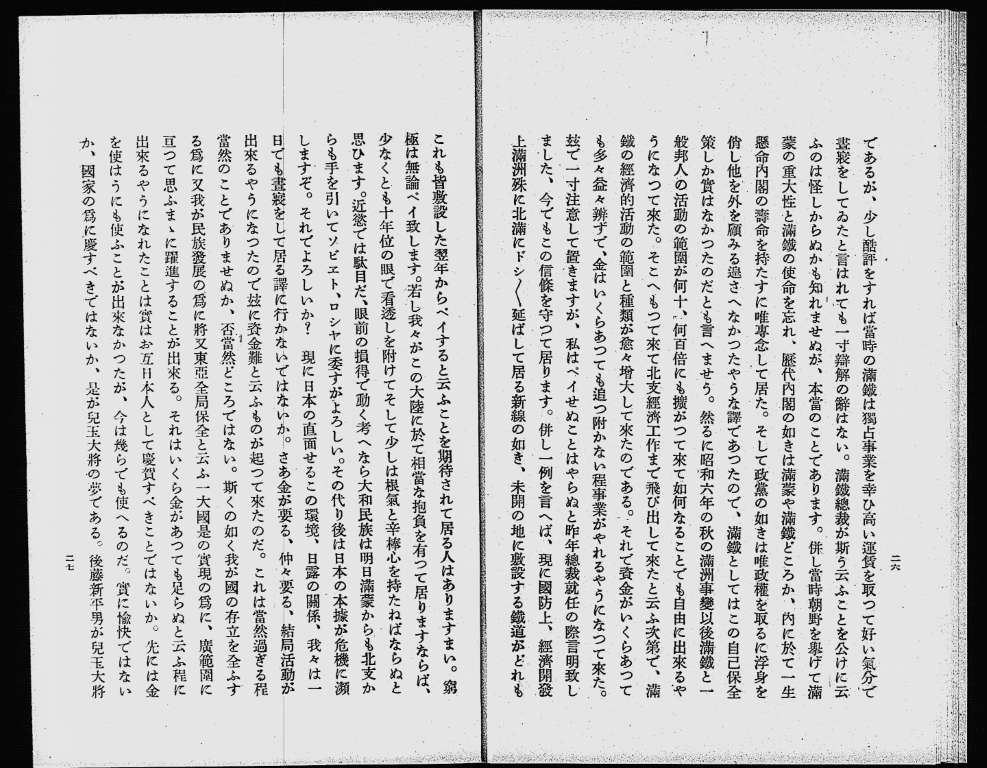 であるが、少し酷評をすれば當時の滿鐵は獨占事業を幸ひ高い運賃を取つて好い氣分で
晝寢をしてゐたと言はれても一寸辯解の辭はない。滿鐵總裁が斯う云ふことを公けに云
ふのは怪しからぬかも知れませぬが、本當のことであります。併し當時朝野を擧げて滿
蒙の重大性と滿鐵の使命を忘れ、歷代內閣の如きは滿蒙や滿鐵どころか、內に於て一生
懸命內閣の壽命を持たすに唯專念して居た。そして政黨の如きは唯政權を取るに浮身を
俏し他を外を顧みる遑さへなかつたやうな譯であつたので、滿鐵としてはこの自己保全
策しか實はなかつたのだとも言へませう。然るに昭和六年の秋の滿洲事變以後滿鐵と一
般邦人の活動の範圍が何十、何百倍にも擴がつて來て如何なることでも自由に出來るや
うになつて來た。そこへもつて來て北支經濟工作まで飛び出して來たと云ふ次第で、滿
鐵の經濟的活動の範圍と種類が愈々增大して來たのである。それで資金がいくらあつて
も多々益々辨ずで、金はいくらあつても追つ附かない程事業がやれるやうになつて來た。
玆で一寸注意して置きますが、私はペイせぬことはやらぬと昨年總裁就任の際言明致し
ました、今でもこの信條を守つて居ります。併し一例を言へば、現に國防上、經濟開發
上滿洲殊に北滿にドシ〱延ばして居る新線の如き、未開の地に敷設する鐵道がどれも
二六
これも皆敷設した翌年からペイすると云ふことを期待されて居る人はありますまい。窮
極は無論ペイ致します。若し我々がこの大陸に於て相當な抱負を有つて居りますならば、
少なくとも十年位の眼で看透しを附けてそして少しは根氣と辛棒心を持たねばならぬと
思ひます。近慾では駄目だ、眼前の損得で動く考へなら大和民族は明日滿蒙からも北支か
らも手を引いてソビエト、ロシヤに委すがよろしい。その代り後は日本の本據が危機に瀕
しますぞ。それでよろしいか？　現に日本の直面せるこの環境、日露の關係、我々は一
日でも晝寢をして居る譯に行かないではないか。さあ金が要る、仲々要る、結局活動が
出來るやうになつたので玆に資金難と云ふものが起つて來たのだ。これは當然過ぎる程
當然のことでありませぬか、否當然どころではない。斯くの如く我が國の存立を全ふす
る爲に又我が民族發展の爲に將又東亞全局保全と云ふ一大國是の實現の爲に、廣範圍に
亘つて思ふまゝに躍進することが出來る。それはいくら金があつても足らぬと云ふ程に
出來るやうになれたことは實はお互日本人として慶賀すべきことではないか。先には金
を使はうにも使ふことが出來なかつたが、今は幾らでも使へるのだ。實に愉快ではない
か、國家の爲に慶すべきではないか、是が兒玉大將の夢である。後藤新平男が兒玉大將
二七